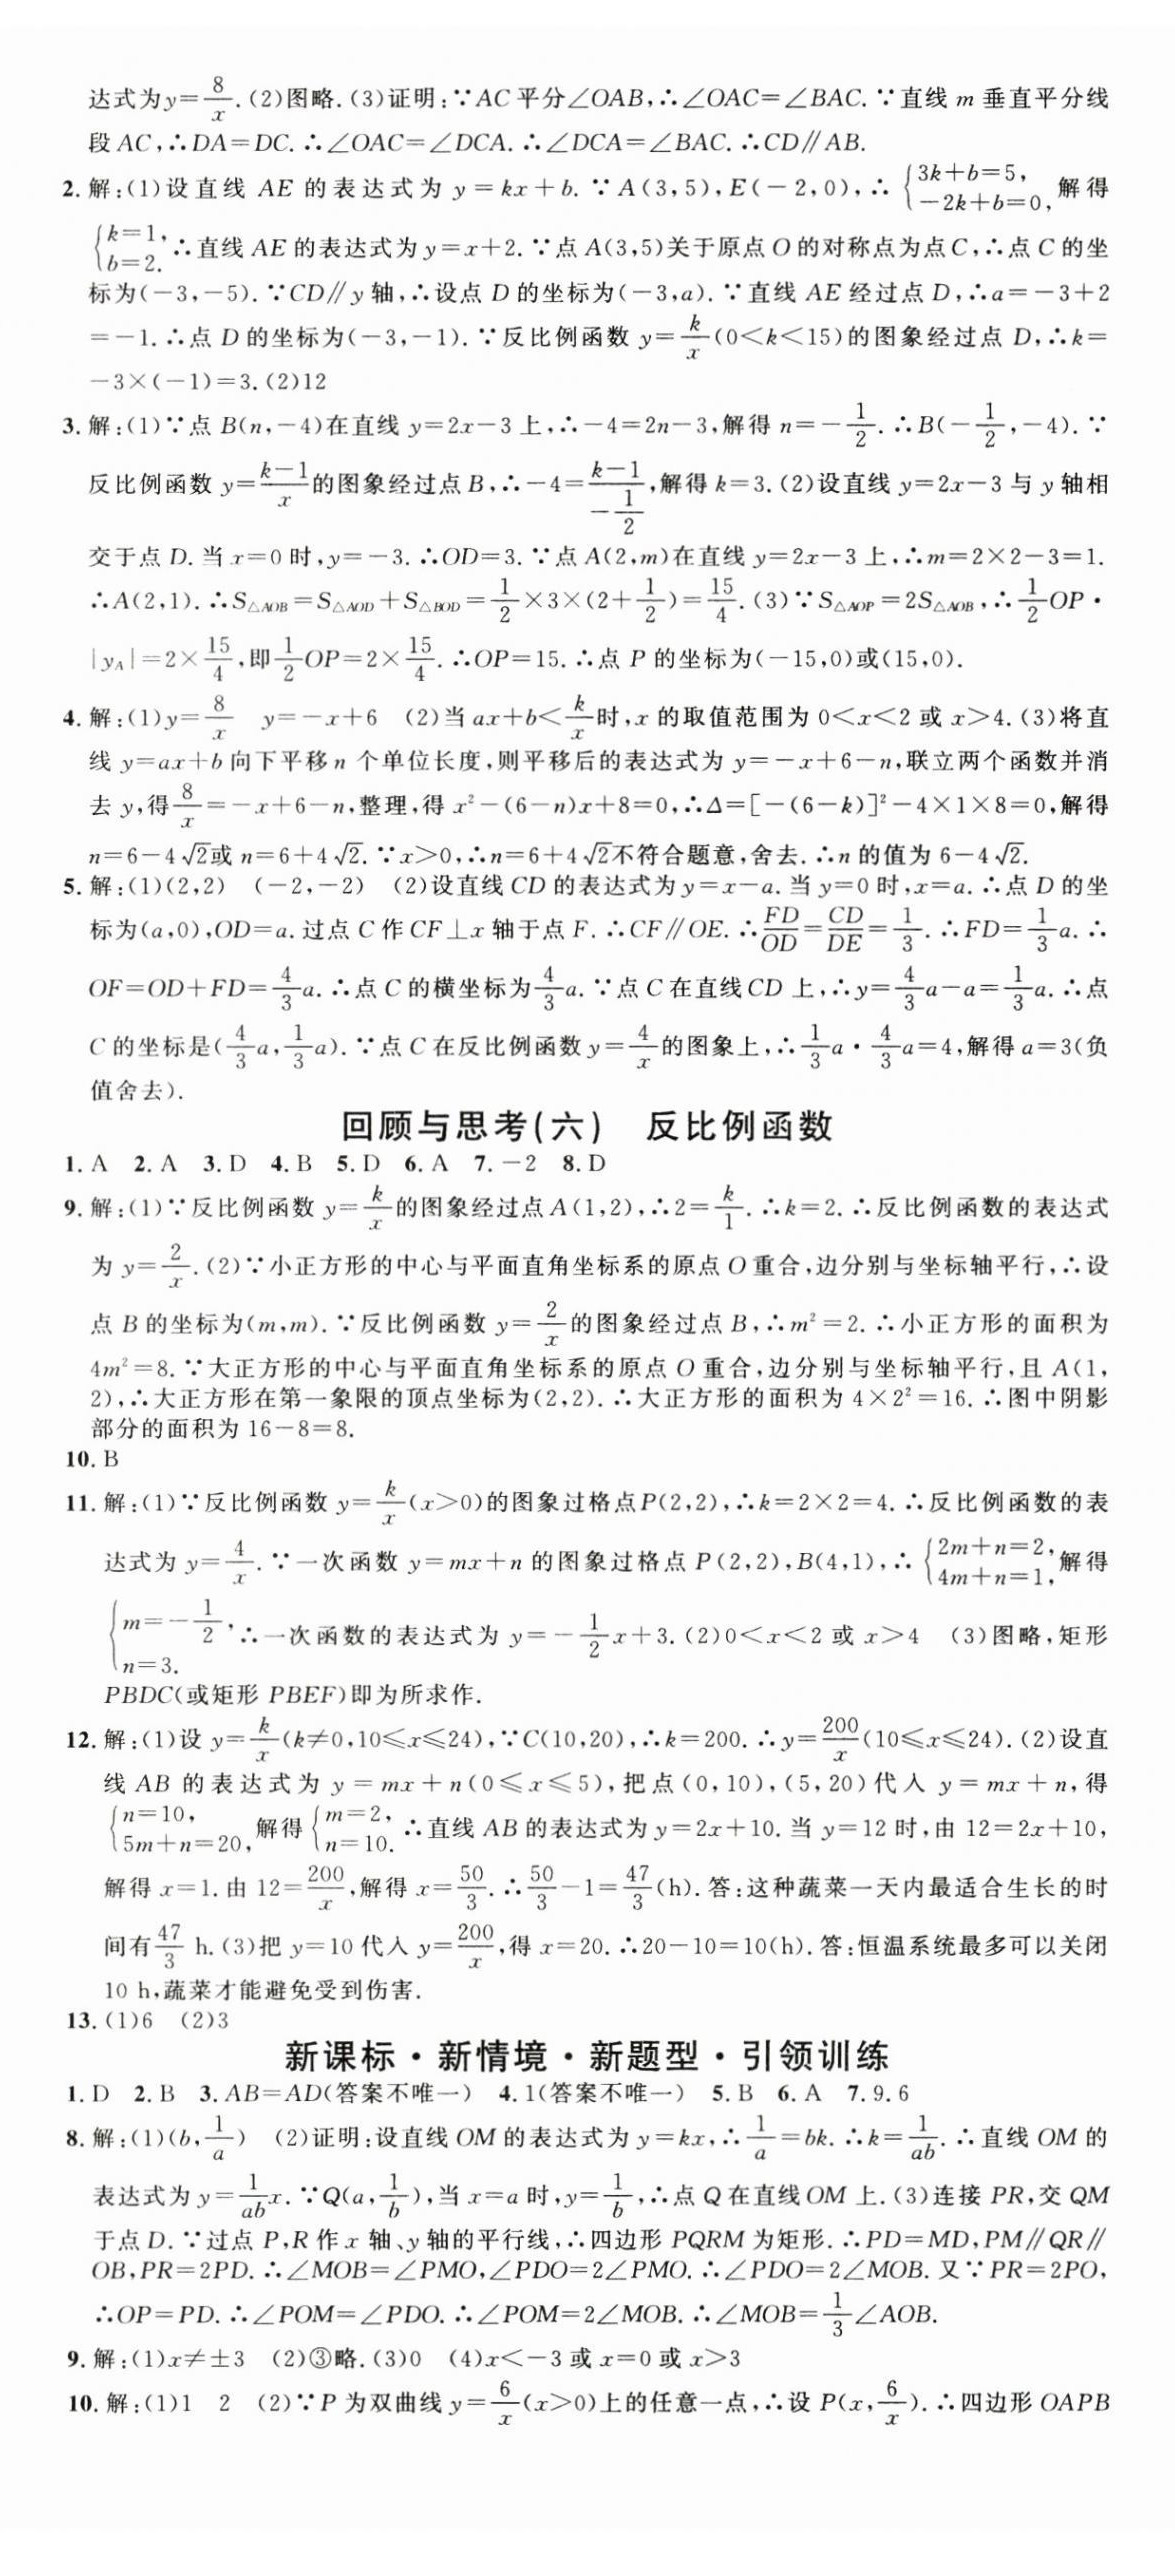 达式为y=8/x.(2)图略.(3)证明:∵AC平分∠OAB,∴∠OAC=∠BAC.∵直线m垂直平分线
段AC,∴DA=DC.∴∠OAC=∠DCA.∴∠DCA=∠BAC.∴CD∥AB.
2.解:(1)设直线 AE 的表达式为 y=kx+b.∵A(3,5),E(-2,0),∴{3k+b=5, -2k+b=0, 解得
{k=1, b=2. ∴直线AE的表达式为y=x+2.∵点A(3,5)关于原点O的对称点为点C,∴点C的坐
标为(-3,-5).∵CD∥y轴,∴设点D的坐标为(-3,a).∵直线AE经过点D,∴a=-3+2
=-1.∴点D的坐标为(-3,-1).∵反比例函数y=k/x(0<k<15)的图象经过点D,∴k=
-3×(-1)=3.(2)12
3.解:(1)∵点B(n,-4)在直线y=2x-3上,∴-4=2n-3,解得n=-1/2.∴B(-1/2,-4).∵
反比例函数y=(k-1)/x的图象经过点B,∴-4=(k-1)/(-1/2),解得k=3.(2)设直线y=2x-3与y轴相
交于点D.当x=0时,y=-3.∴OD=3.∵点A(2,m)在直线y=2x-3上,∴m=2×2-3=1.
∴A(2,1).∴S△AOB=S△AOD+S△BOD=1/2×3×(2+1/2)=15/4.(3)∵S△AOP=2S△AOB,∴1/2OP·
|yA|=2×15/4,即1/2OP=2×15/4.∴OP=15.∴点P的坐标为(-15,0)或(15,0).
4.解:(1)y=8/x y=-x+6 (2)当ax+b<k/x时,x的取值范围为0<x<2或x>4.(3)将直
线y=ax+b向下平移n个单位长度,则平移后的表达式为y=-x+6-n,联立两个函数并消
去y,得8/x=-x+6-n,整理,得x²-(6-n)x+8=0,∴Δ=[-(6-k)]²-4×1×8=0,解得
n=6-4√2或n=6+4√2.∵x>0,∴n=6+4√2不符合题意,舍去.∴n的值为6-4√2.
5.解:(1)(2,2) (-2,-2) (2)设直线CD的表达式为y=x-a.当y=0时,x=a.∴点D的坐
标为(a,0),OD=a.过点C作CF⊥x轴于点F.∴CF∥OE.∴FD/OD=CD/DE=1/3.∴FD=1/3a.∴
OF=OD+FD=4/3a.∴点C的横坐标为4/3a.∵点C在直线CD上,∴y=4/3a-a=1/3a.∴点
C的坐标是(4/3a,1/3a).∵点C在反比例函数y=4/x的图象上,∴1/3a·4/3a=4,解得a=3(负
值舍去).
回顾与思考(六) 反比例函数
1.A 2.A 3.D 4.B 5.D 6.A 7.-2 8.D
9.解:(1)∵反比例函数y=k/x的图象经过点A(1,2),∴2=k/1.∴k=2.∴反比例函数的表达式
为y=2/x.(2)∵小正方形的中心与平面直角坐标系的原点O重合,边分别与坐标轴平行,∴设
点B的坐标为(m,m).∵反比例函数y=2/x的图象经过点B,∴m²=2.∴小正方形的面积为
4m²=8.∵大正方形的中心与平面直角坐标系的原点O重合,边分别与坐标轴平行,且A(1,
2),∴大正方形在第一象限的顶点坐标为(2,2).∴大正方形的面积为4×2²=16.∴图中阴影
部分的面积为16-8=8.
10.B
11.解:(1)∵反比例函数y=k/x(x>0)的图象过格点P(2,2),∴k=2×2=4.∴反比例函数的表
达式为y=4/x.∵一次函数y=mx+n的图象过格点P(2,2),B(4,1),∴{2m+n=2, 4m+n=1, 解得
{m=-1/2, n=3. ∴一次函数的表达式为y=-1/2x+3.(2)0<x<2或x>4 (3)图略,矩形
PBDC(或矩形PBEF)即为所求作.
12.解:(1)设y=k/x(k≠0,10≤x≤24),∵C(10,20),∴k=200.∴y=200/x(10≤x≤24).(2)设直
线AB的表达式为y=mx+n(0≤x≤5),把点(0,10),(5,20)代入y=mx+n,得
{n=10, 5m+n=20, 解得{m=2, n=10. ∴直线AB的表达式为y=2x+10.当y=12时,由12=2x+10,
解得x=1.由12=200/x,解得x=50/3.∴50/3-1=47/3(h).答:这种蔬菜一天内最适合生长的时
间有47/3 h.(3)把y=10代入y=200/x,得x=20.∴20-10=10(h).答:恒温系统最多可以关闭
10 h,蔬菜才能避免受到伤害.
13.(1)6 (2)3
新课标·新情境·新题型·引领训练
1.D 2.B 3.AB=AD(答案不唯一) 4.1(答案不唯一) 5.B 6.A 7.9.6
8.解:(1)(b,1/a) (2)证明:设直线OM的表达式为y=kx,∴1/a=bk.∴k=1/ab.∴直线OM的
表达式为y=1/ab x.∵Q(a,1/b),当x=a时,y=1/b,∴点Q在直线OM上.(3)连接PR,交QM
于点D.∵过点P,R作x轴、y轴的平行线,∴四边形PQRM为矩形.∴PD=MD,PM∥QR∥
OB,PR=2PD.∴∠MOB=∠PMO,∠PDO=2∠PMO.∴∠PDO=2∠MOB.又∵PR=2PO,
∴OP=PD.∴∠POM=∠PDO.∴∠POM=2∠MOB.∴∠MOB=1/3∠AOB.
9.解:(1)x≠±3 (2)③略.(3)0 (4)x<-3或x=0或x>3
10.解:(1)1 2 (2)∵P为双曲线y=6/x(x>0)上的任意一点,∴设P(x,6/x).∴四边形OAPB